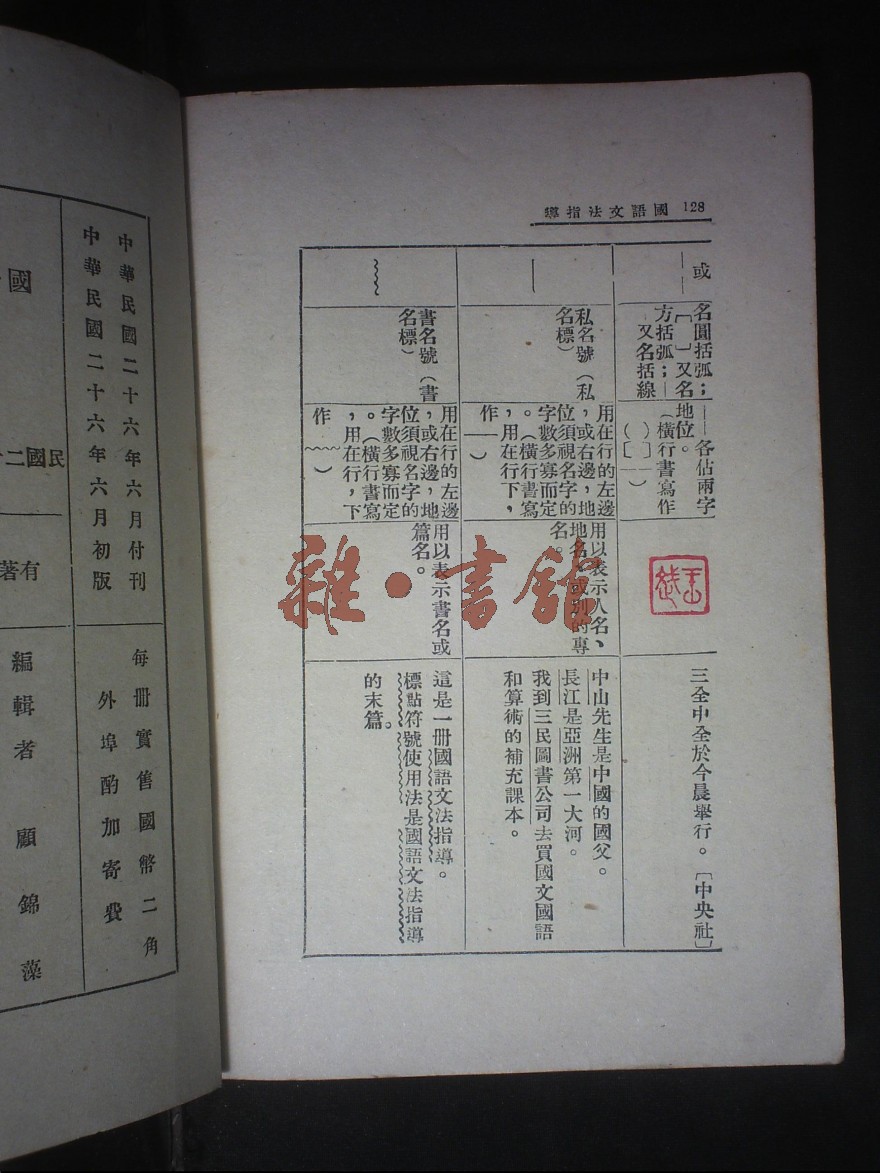 128 國語文法指導
或
名圓括弧；
〔　〕又名
方括弧；—
又名括線
——各佔兩字
地位。
（橫行書寫作
（　）〔　〕
——）
三全中全於今晨舉行。〔中央社〕
私名號（私
名標）
用在行的左邊
，或右邊，地
位須視名字的
字數多寡而定
。（橫行書寫
，用在行下，
作——）
用以表示人名、
地名、或別的專
名。
中山先生是中國的國父。
長江是亞洲第一大河。
我到三民圖書公司去買國文國語
和算術的補充課本。
書名號（書
名標）
用在行的左邊
，或右邊，地
位須視名字的
字數多寡而定
。（橫行書寫
，用在行下，
作﹏﹏）
用以表示書名或
篇名。
這是一冊國語文法指導。
標點符號使用法是國語文法指導
的末篇。
雜·書館
中華民國二十六年六月付刊
中華民國二十六年六月初版
每冊實售國幣二角
外埠酌加寄費
國
民國二
有著
編輯者 顧錦藻